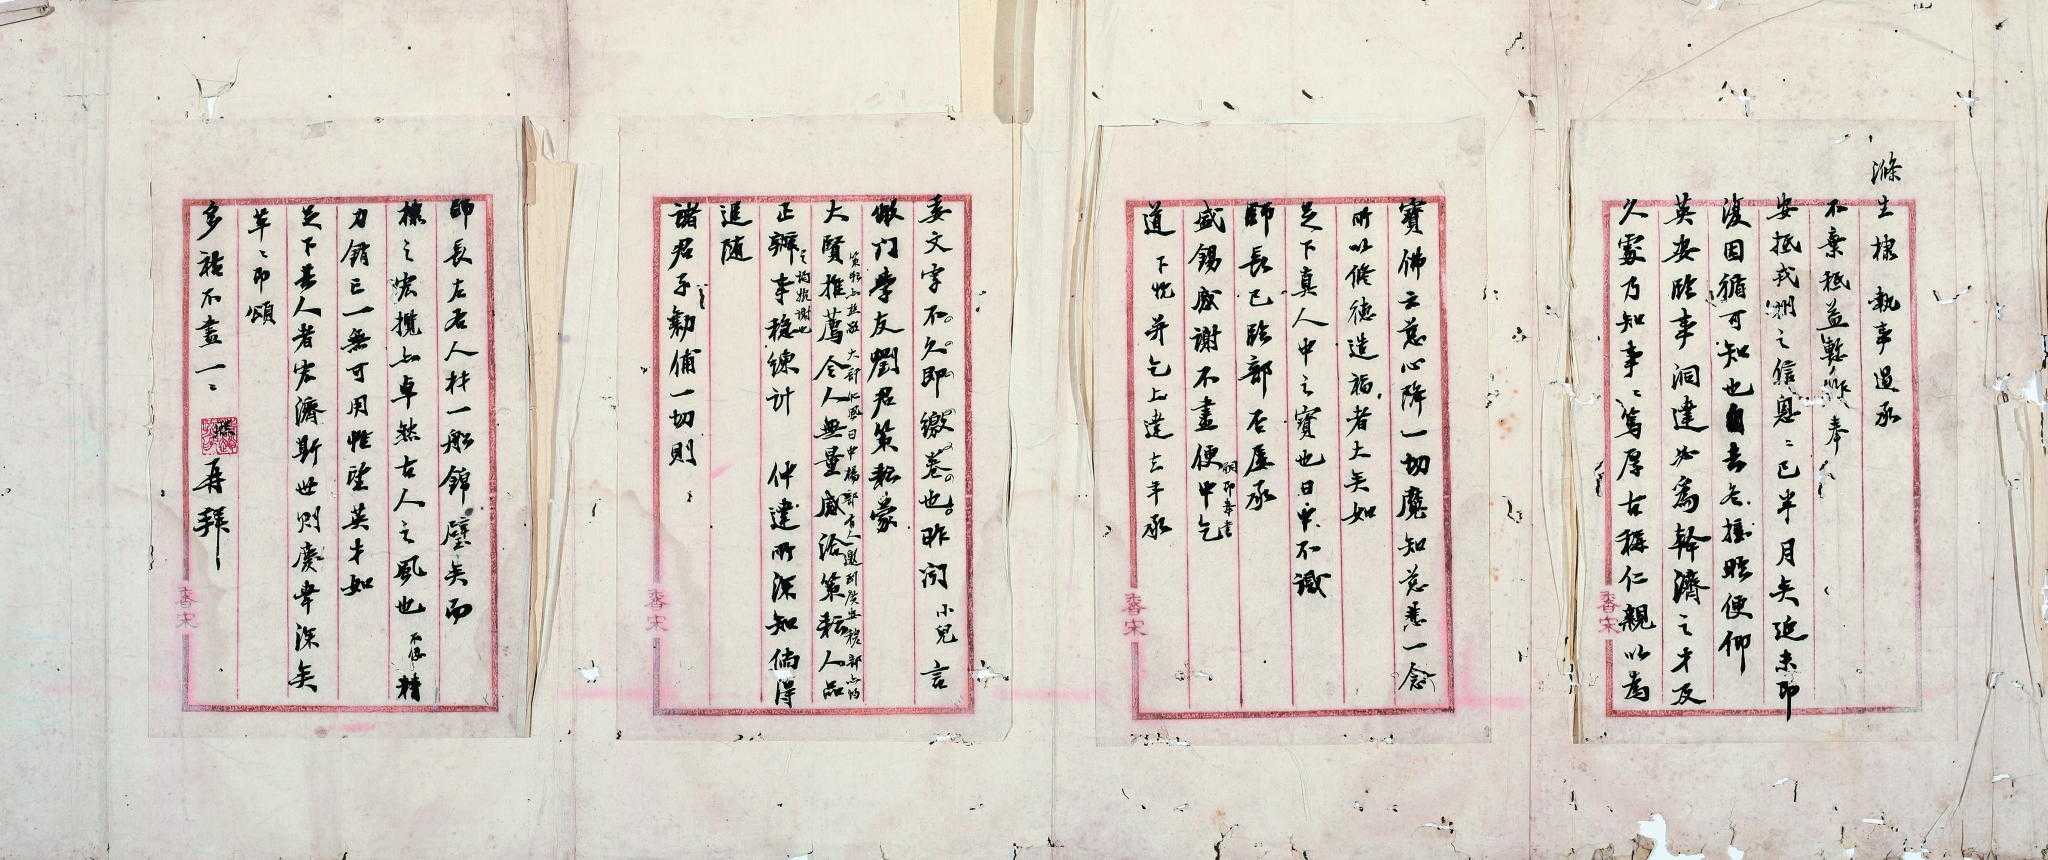 滌生棣 執事過承
不棄祗益慙悚奉
安抵我湘之信息〻已半月矣延未即
復因循可知也自去冬接晤便仰
英安臨事洞達必為幹濟之才及
久處乃知事〻篤厚古稱仁親以為
寶佛云慈心降一切魔知慈悲一念
所以修德造福者大矣如
足下真人中之寶也日中不識
師長已臨部否屢承
盛錫感謝不盡便中乞
道 下忱并乞上達
委文字不久即繳卷也昨聞小兒言
敝门學友劉君策耘蒙
大賢推薦令人無量感洽策耘人品
正辦事穩練計 仲建所深知倘得
追随
諸君子勷俌一切則
師長左右人材一船錦璧矣而
棣之宏攬上卓然古人之風也 不佞精
力銷已一無可用惟望英才如
足下其人者宏濟斯世則慶幸深矣
草〻即頌
多祜不盡一〻
再拜
春宋
春宋
春宋
春宋